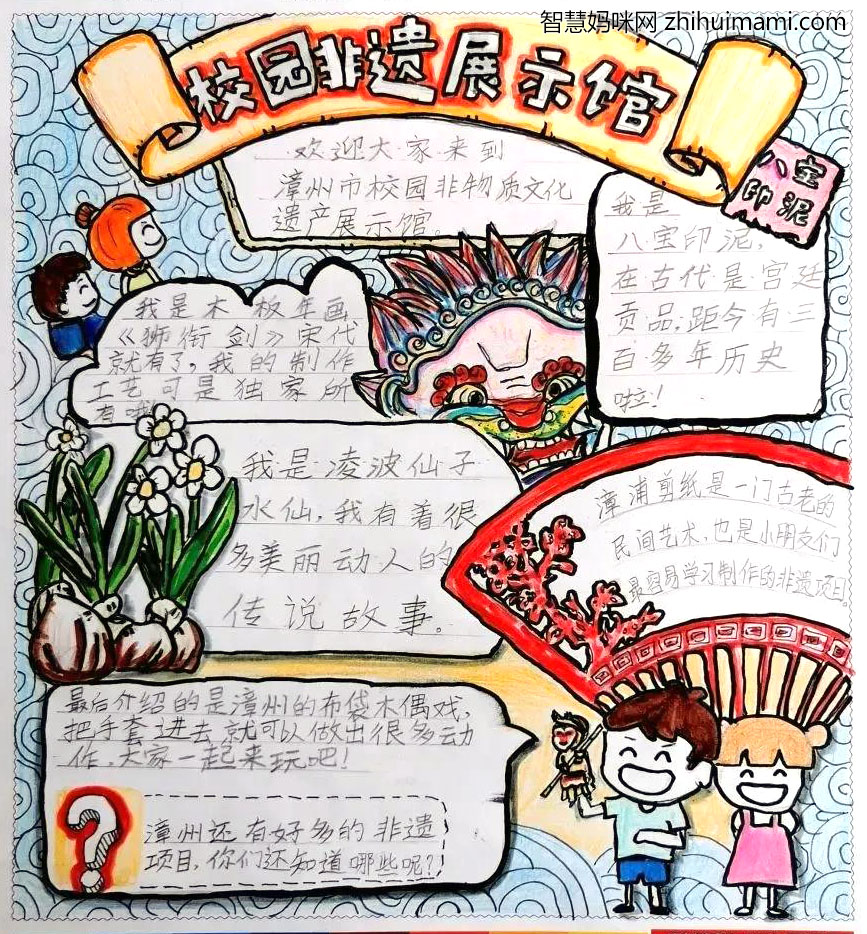 智慧妈咪网 zhihuimami.com
校园非遗展示馆
欢迎大家来到
漳州市校园非物质文化
遗产展示馆。
八宝
印泥
我是
八宝印泥,
在古代是宫廷
贡品,距今有三
百多年历史
啦!
我是木板年画
《狮衔剑》宋代
就有了,我的制作
工艺可是独家所
有哦
我是凌波仙子
水仙,我有着很
多美丽动人的
传说故事。
漳浦剪纸是一门古老的
民间艺术,也是小朋友们
最容易学习制作的非遗项目。
最后介绍的是漳州的布袋木偶戏,
把手套进去就可以做出很多动
作,大家一起来玩吧!
?
漳州还有好多的非遗
项目,你们还知道哪些呢?